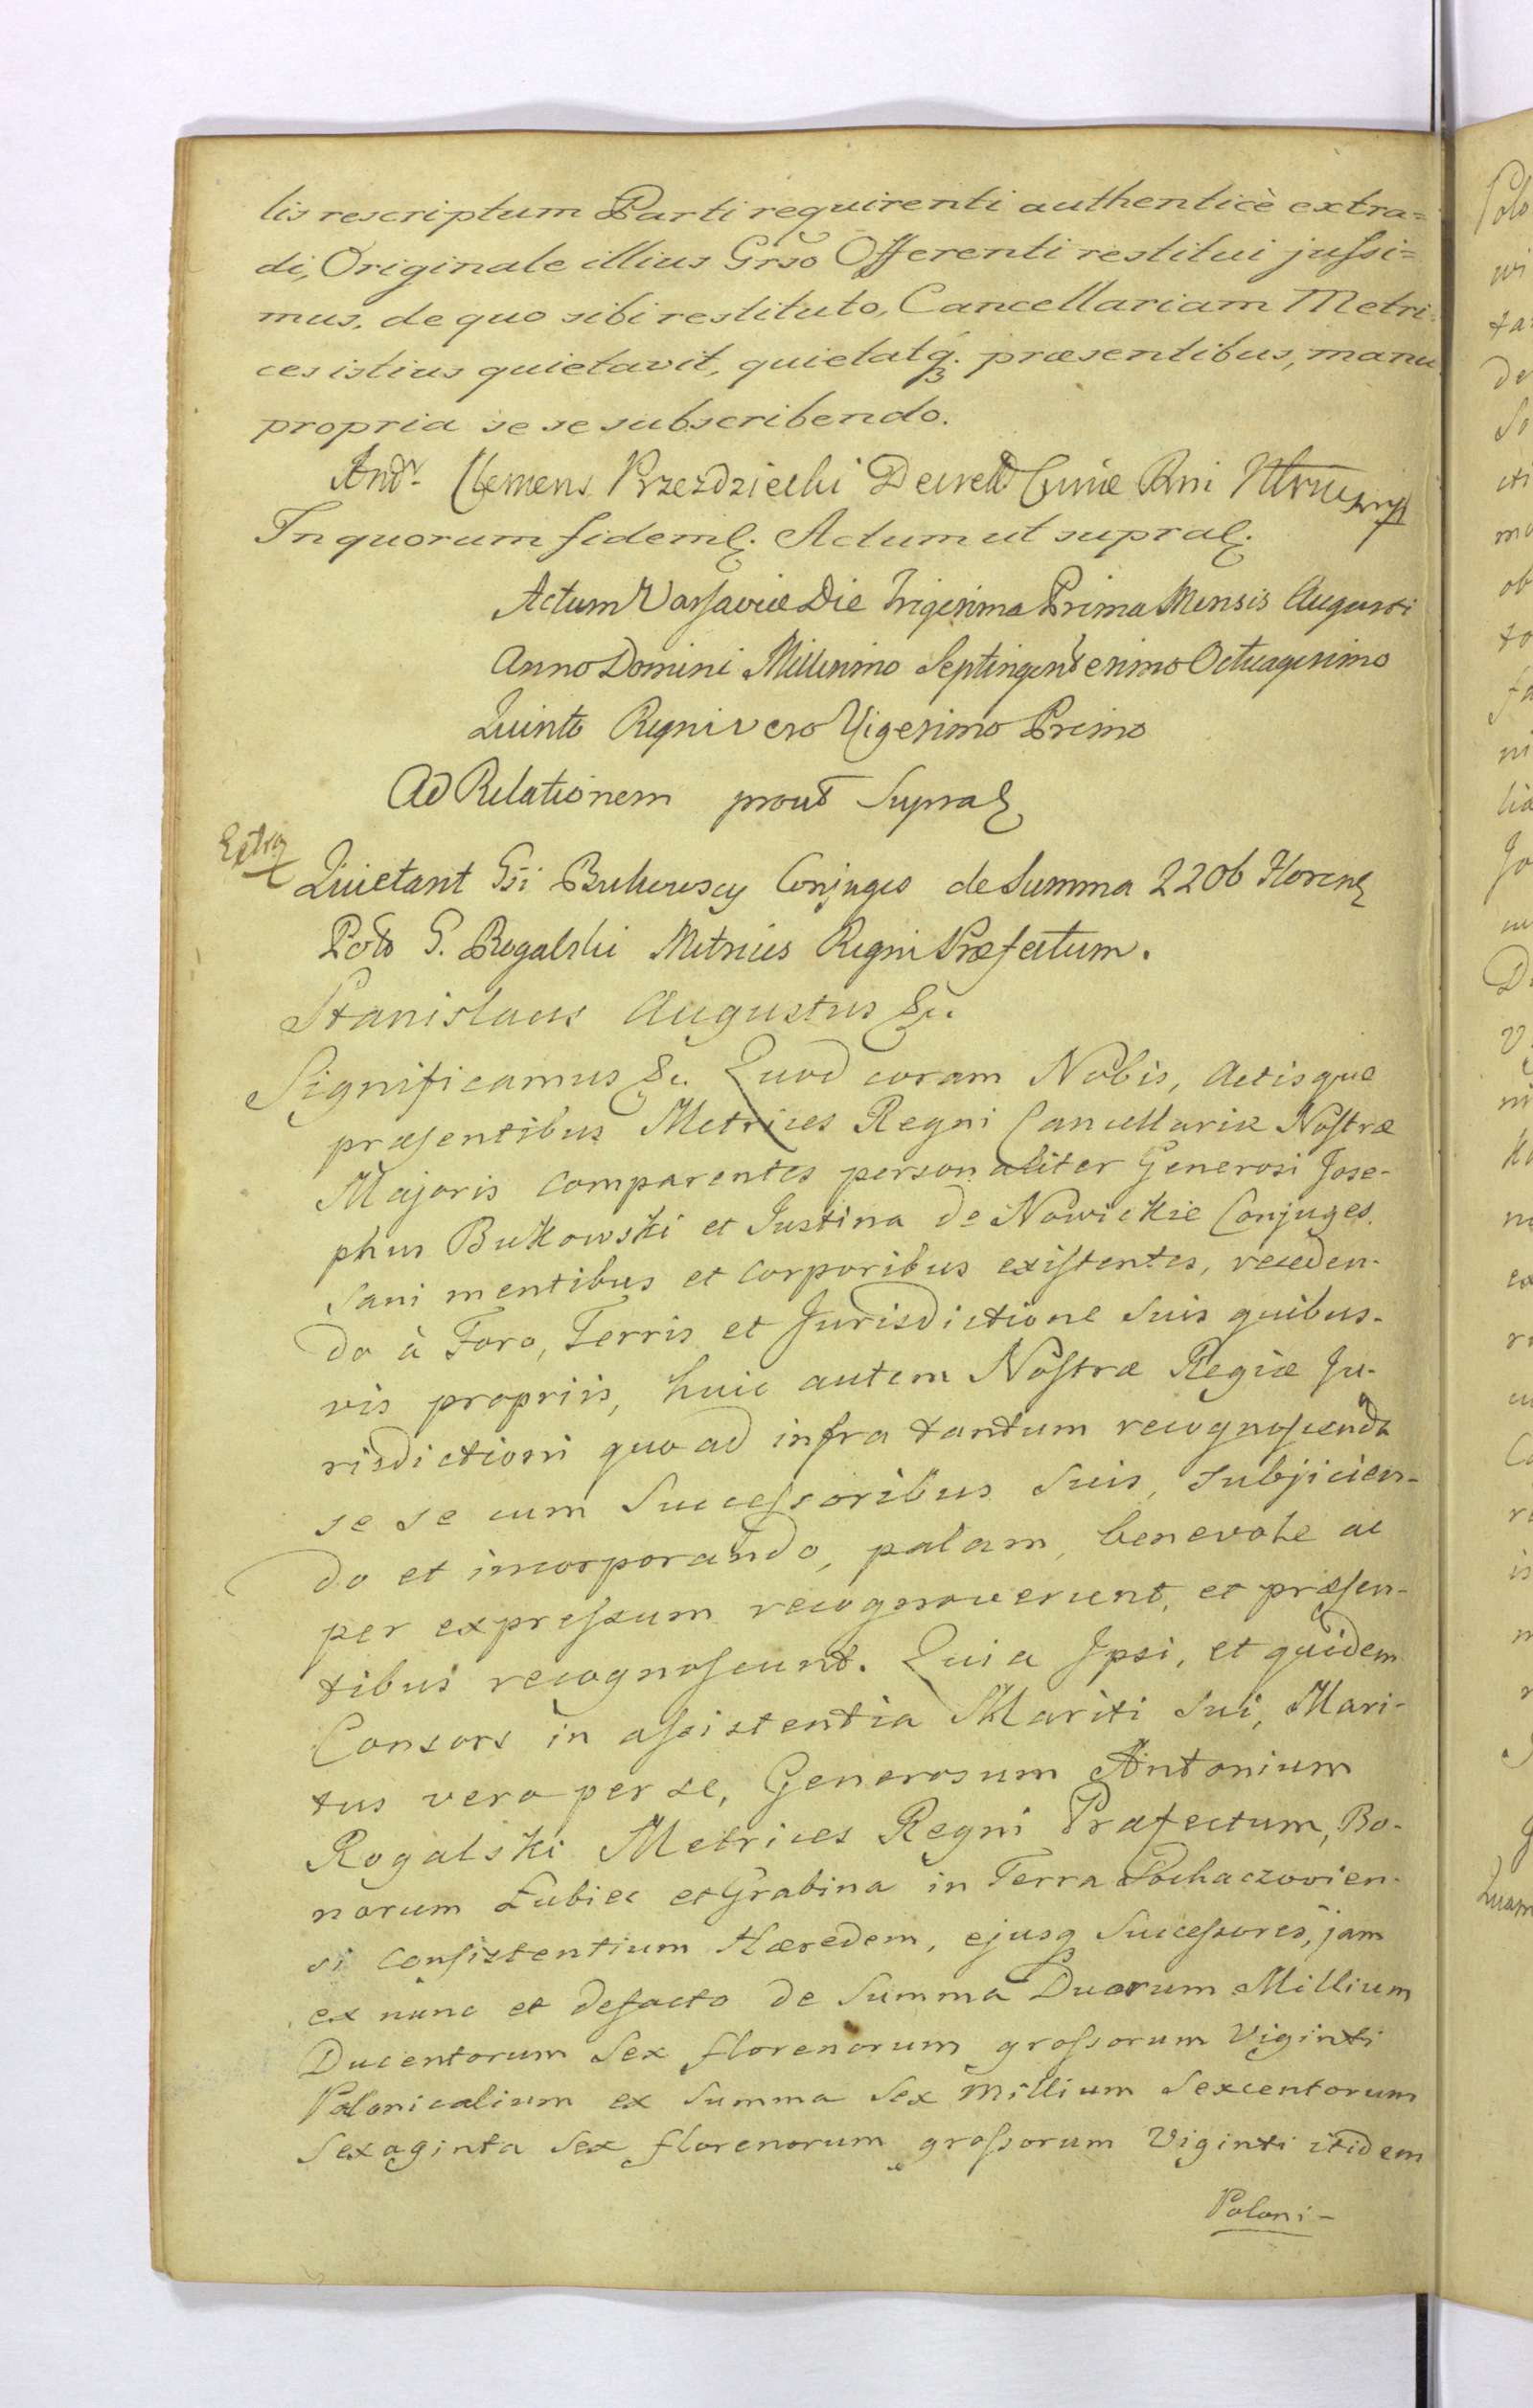 lis rescriptum Parti requirenti authenticè extra=
di, Originale illius Grso Offerenti restitui jussi=
mus. de quo sibi restituto, Cancellariam Metri=
ces istius quietavit, quietatq3. præsentibus, manu
propria se se subscribendo.
Andr. Clemens Przezdziecki Curiæ
In quorum fidem&. Actum ut supra&.
Actum Varsaviæ Die Trigesima Prima Mensis Augusti
Anno Domini Millesimo Septingentesimo Octuagesimo
Quinto Regni vero Vigesimo Primo
Ad Relationem prout Supra&
Extra
Quietant Gsi Bukowscy Conjuges de Summa 2206 Floren&
Polo G. Rogalski Metrices Regni Præfectum.
Stanislaus Augustus &c.
Significamus &c. Quod coram Nobis, Actisque
præsentibus Metrices Regni Cancellariæ Nostræ
Majoris comparentes personaliter Generosi Jose-
phus Bukowski et Justina de Nowickie Conjuges
sani mentibus et corporibus existentes, receden-
do à Foro, Terris et Jurisdictione suis quibus-
vis propriis, huic autem Nostræ Regiæ Ju-
risdictioni quo ad infra tantum recognoscenda
se se cum Successoribus suis, subjicien-
do et incorporando, palam, benevole ac
per expressum recognoverunt, et præsen-
tibus recognoscunt. Quia Ipsi, et quidem
Consors in assistentia Mariti sui, Mari-
tus vero per se, Generosum Antonium
Rogalski Metrices Regni Præfectum, Bo-
norum Łubiec et Grabina in Terra Sochaczovien-
si consistentium Hæredem, ejusq Successores, jam
ex nunc et defacto de Summa Duorum Millium
Ducentorum Sex florenorum grossorum Viginti
Polonicalium ex Summa Sex Millium Sexcentorum
Sexaginta Sex florenorum grossorum Viginti itidem
Poloni-